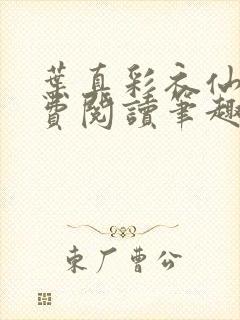 葉真彩衣仙
費閱讀筆趣
東厂曹公